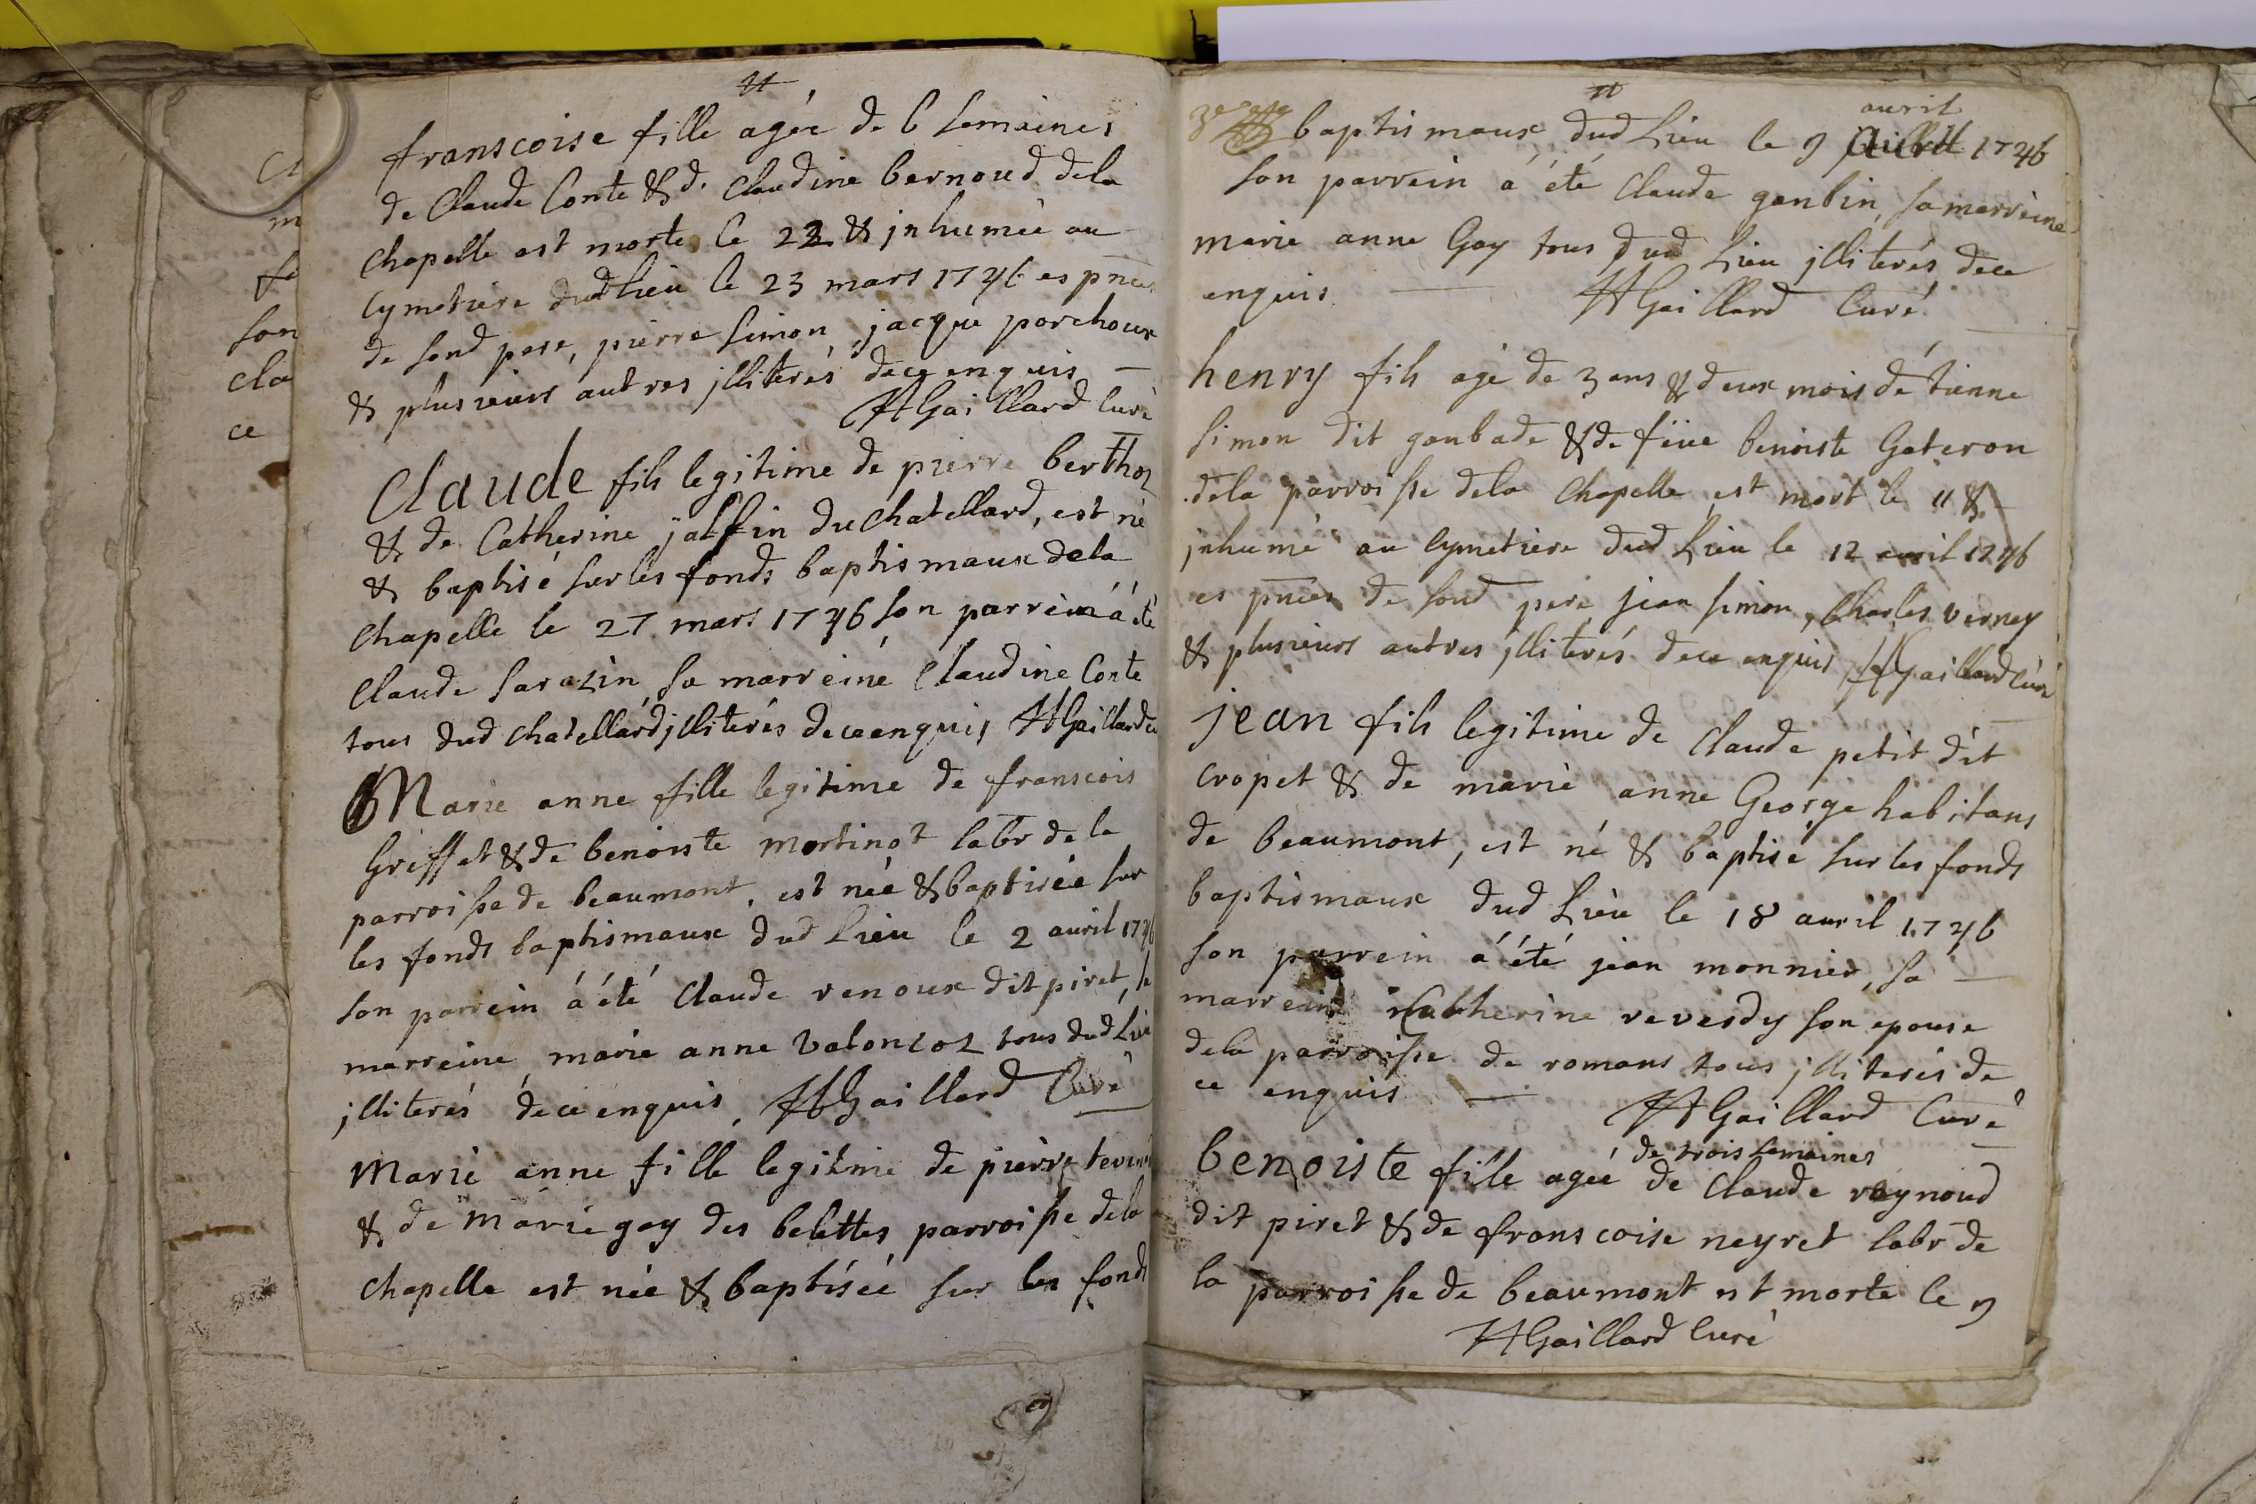 franscoise fille agée de 6 semaines
de Claude Conte & d. Claudine bernoud dela
chapelle est morte le 22 & jnhumée au
Cymetiere dud lieu le 23 mars 1746 es pnces
de sond pere, pierre simon, jacque porchoux
& plusieurs autres jlliterés dece enquis
Gaillard Curé
Claude fils legitime de pierre berthoz
& de Catherine jatfin du chatellard, est né
& baptisé sur les fonds baptismaux dela
chapelle le 27 mars 1746 son parrein á été
Claude sarazin sa marreine Claudine Conte
tous dud chatellard jlliterés dece enquis Gaillard cu
Marie anne fille legitime de franscois
Griffet & de benoiste mortinot labr de la
parroisse de beaumont, est née & baptisée sur
les fonds baptismaux dud lieu le 2 auril 1746
son parrein á été Claude renoux dit piret, sa
marreine marie anne Valonzoz tous dud lieu
jlliterés dece enquis, Gaillard Curé
Marie anne fille legitime de pierre
& de marie gay des belettes parroisse dela
chapelle est née & baptisée sur les fonds
auril
baptismaux dud lieu le 9 1746
son parrein á été Claude ganbin, sa marreine
marie anne Gay tous dud lieu jlliterés dece
enquis Gaillard Curé
henry fils agé de 3 ans & deux mois détienne
simon dit goubade & de füe benoiste Gateron
dela parroisse dela Chapelle est mort le 11 &
jnhumé au Cymetiere dud lieu le 12 auril 1746
es pnces de sond pere jean simon, Charles verney
& plusieurs autres jlliterés dece enquis Gaillard Curé
jean fils legitime de Claude petit dit
cropet & de marie anne George habitans
de beaumont, est né & baptisé sur les fonds
baptismaux dud lieu le 18 auril 1746
son parrein á été jean monnier, sa
marreine Catherine reverdy son epouse
dela parroisse de romans tous jlliterés de
ce enquis Gaillard Curé
de trois semaines
benoiste fille agée de Claude raynoud
dit piret & de franscoise neyret labr de
la parroisse de beaumont est morte le 9
Gaillard Curé